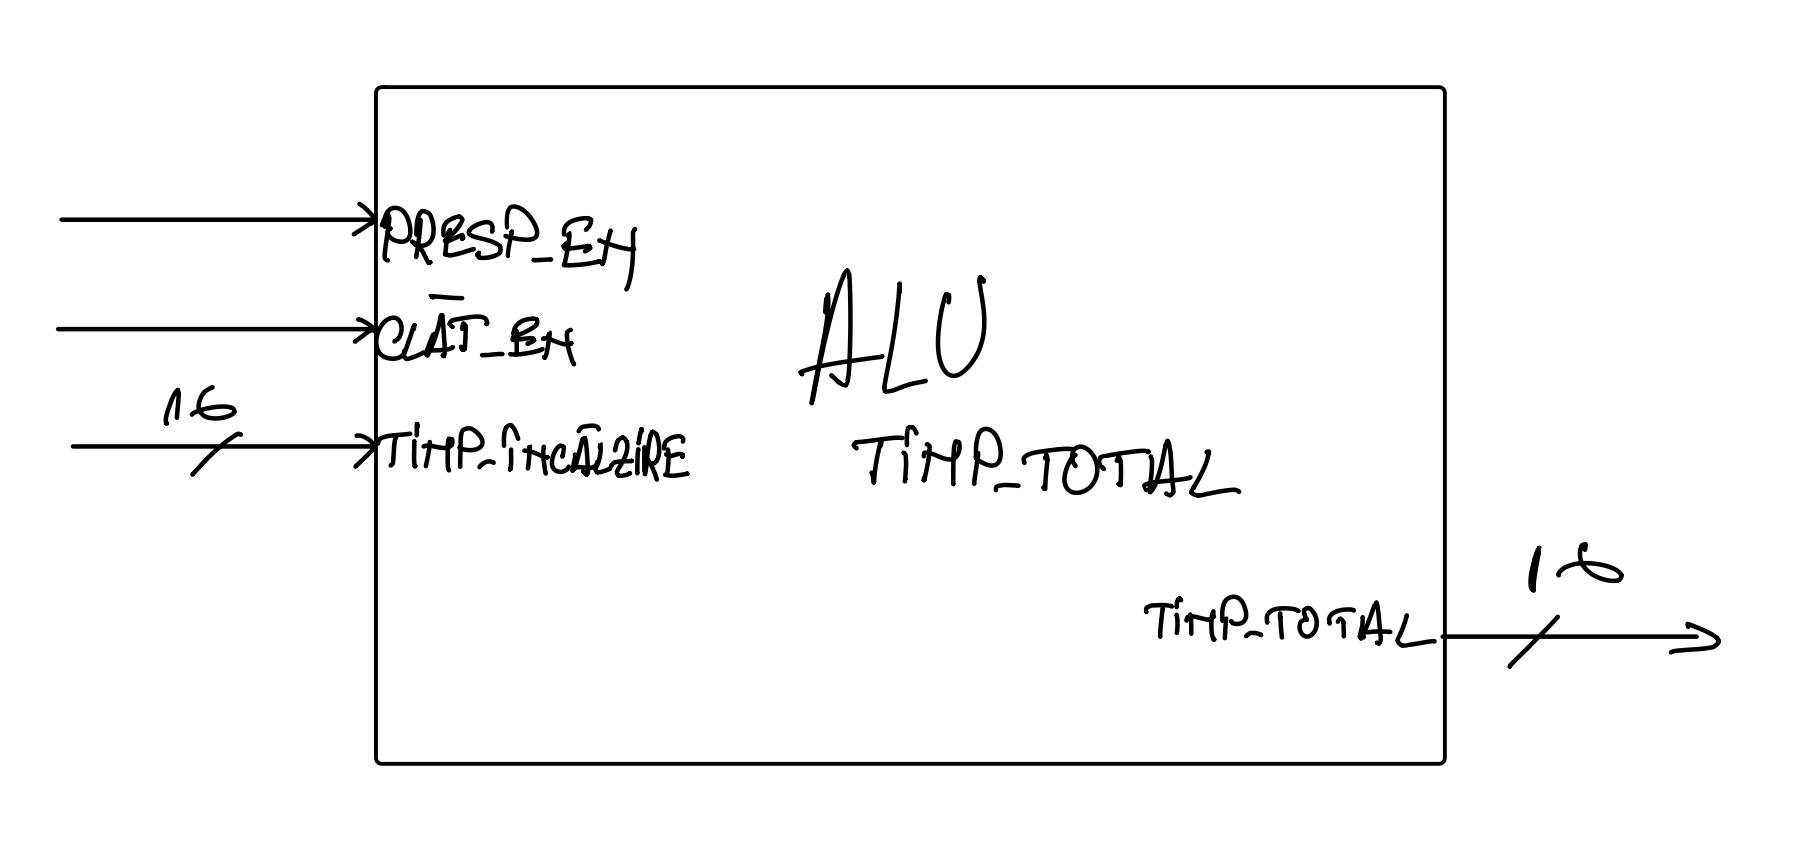 PRESP_EN
CLĂT_EN
16
TIMP_ÎNCĂLZIRE
ALU
TIMP_TOTAL
16
TIMP_TOTAL